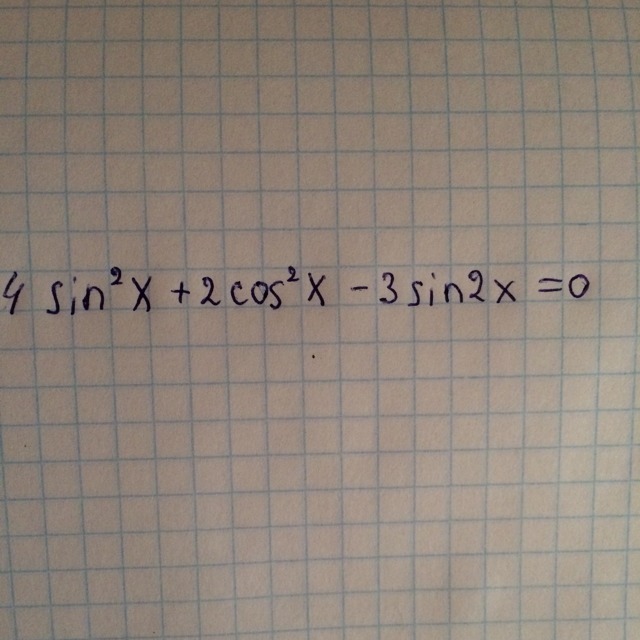 4 sin²x + 2cos²x - 3sin2x = 0